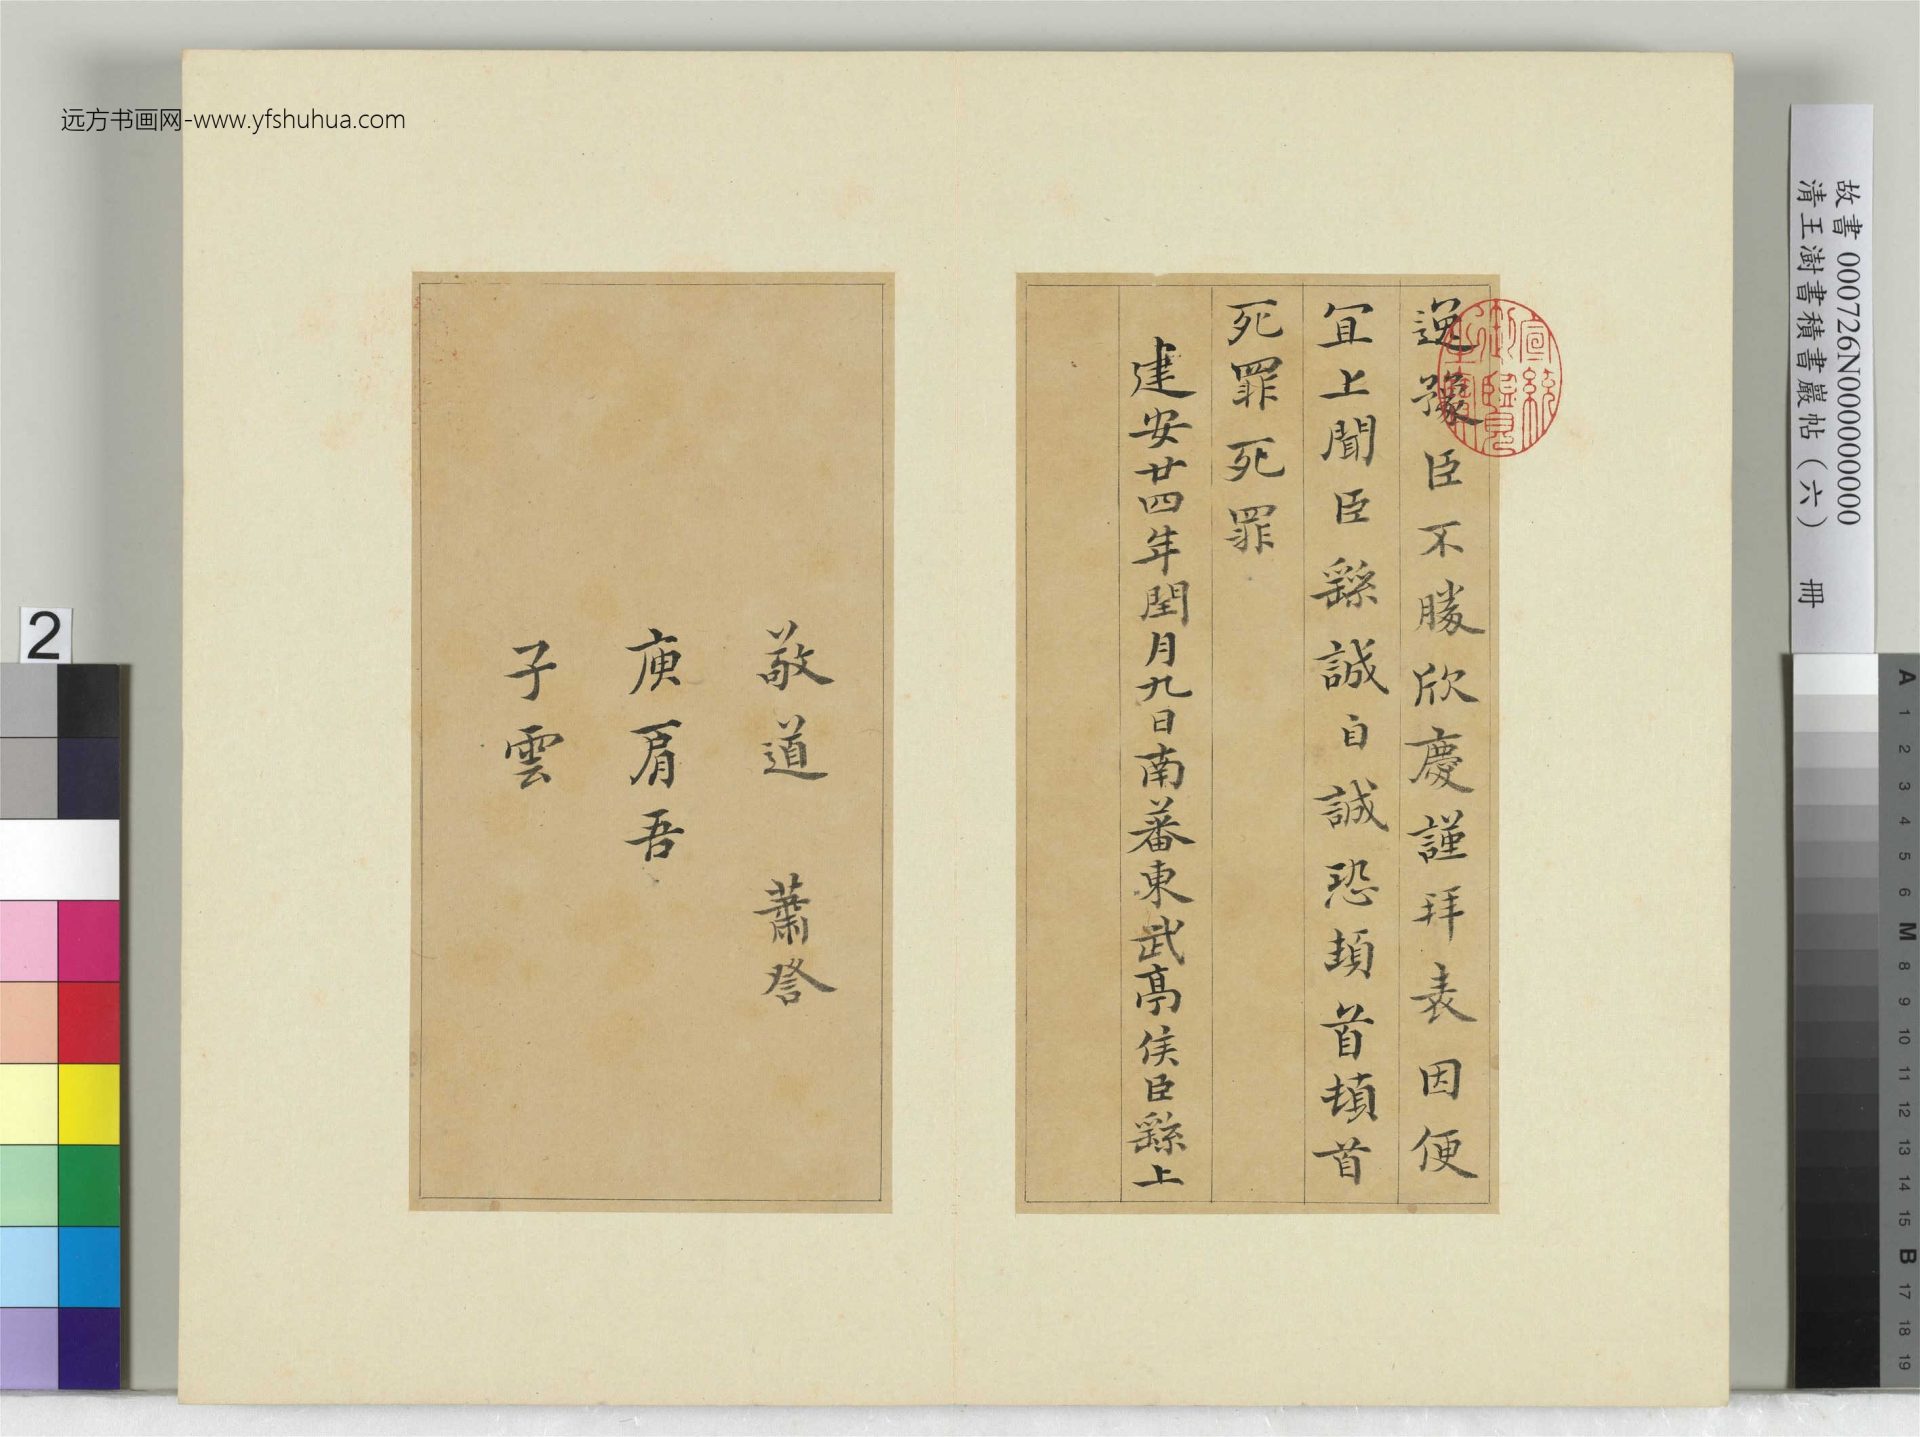 远方书画网-www.yfshuhua.com
故書 000726N000000000
清王澍書積書巖帖（六） 冊
宣統御覽之寶
逸豫臣不勝欣慶謹拜表因便
宜上聞臣繇誠自誠恐頓首頓首
死罪死罪
建安廿四年閏月九日南蕃東武亭侯臣繇上
敬道 蕭詧
庾肩吾
子雲
2
A
1
2
3
4
5
6
M
8
9
10
11
12
13
14
15
B
17
18
19